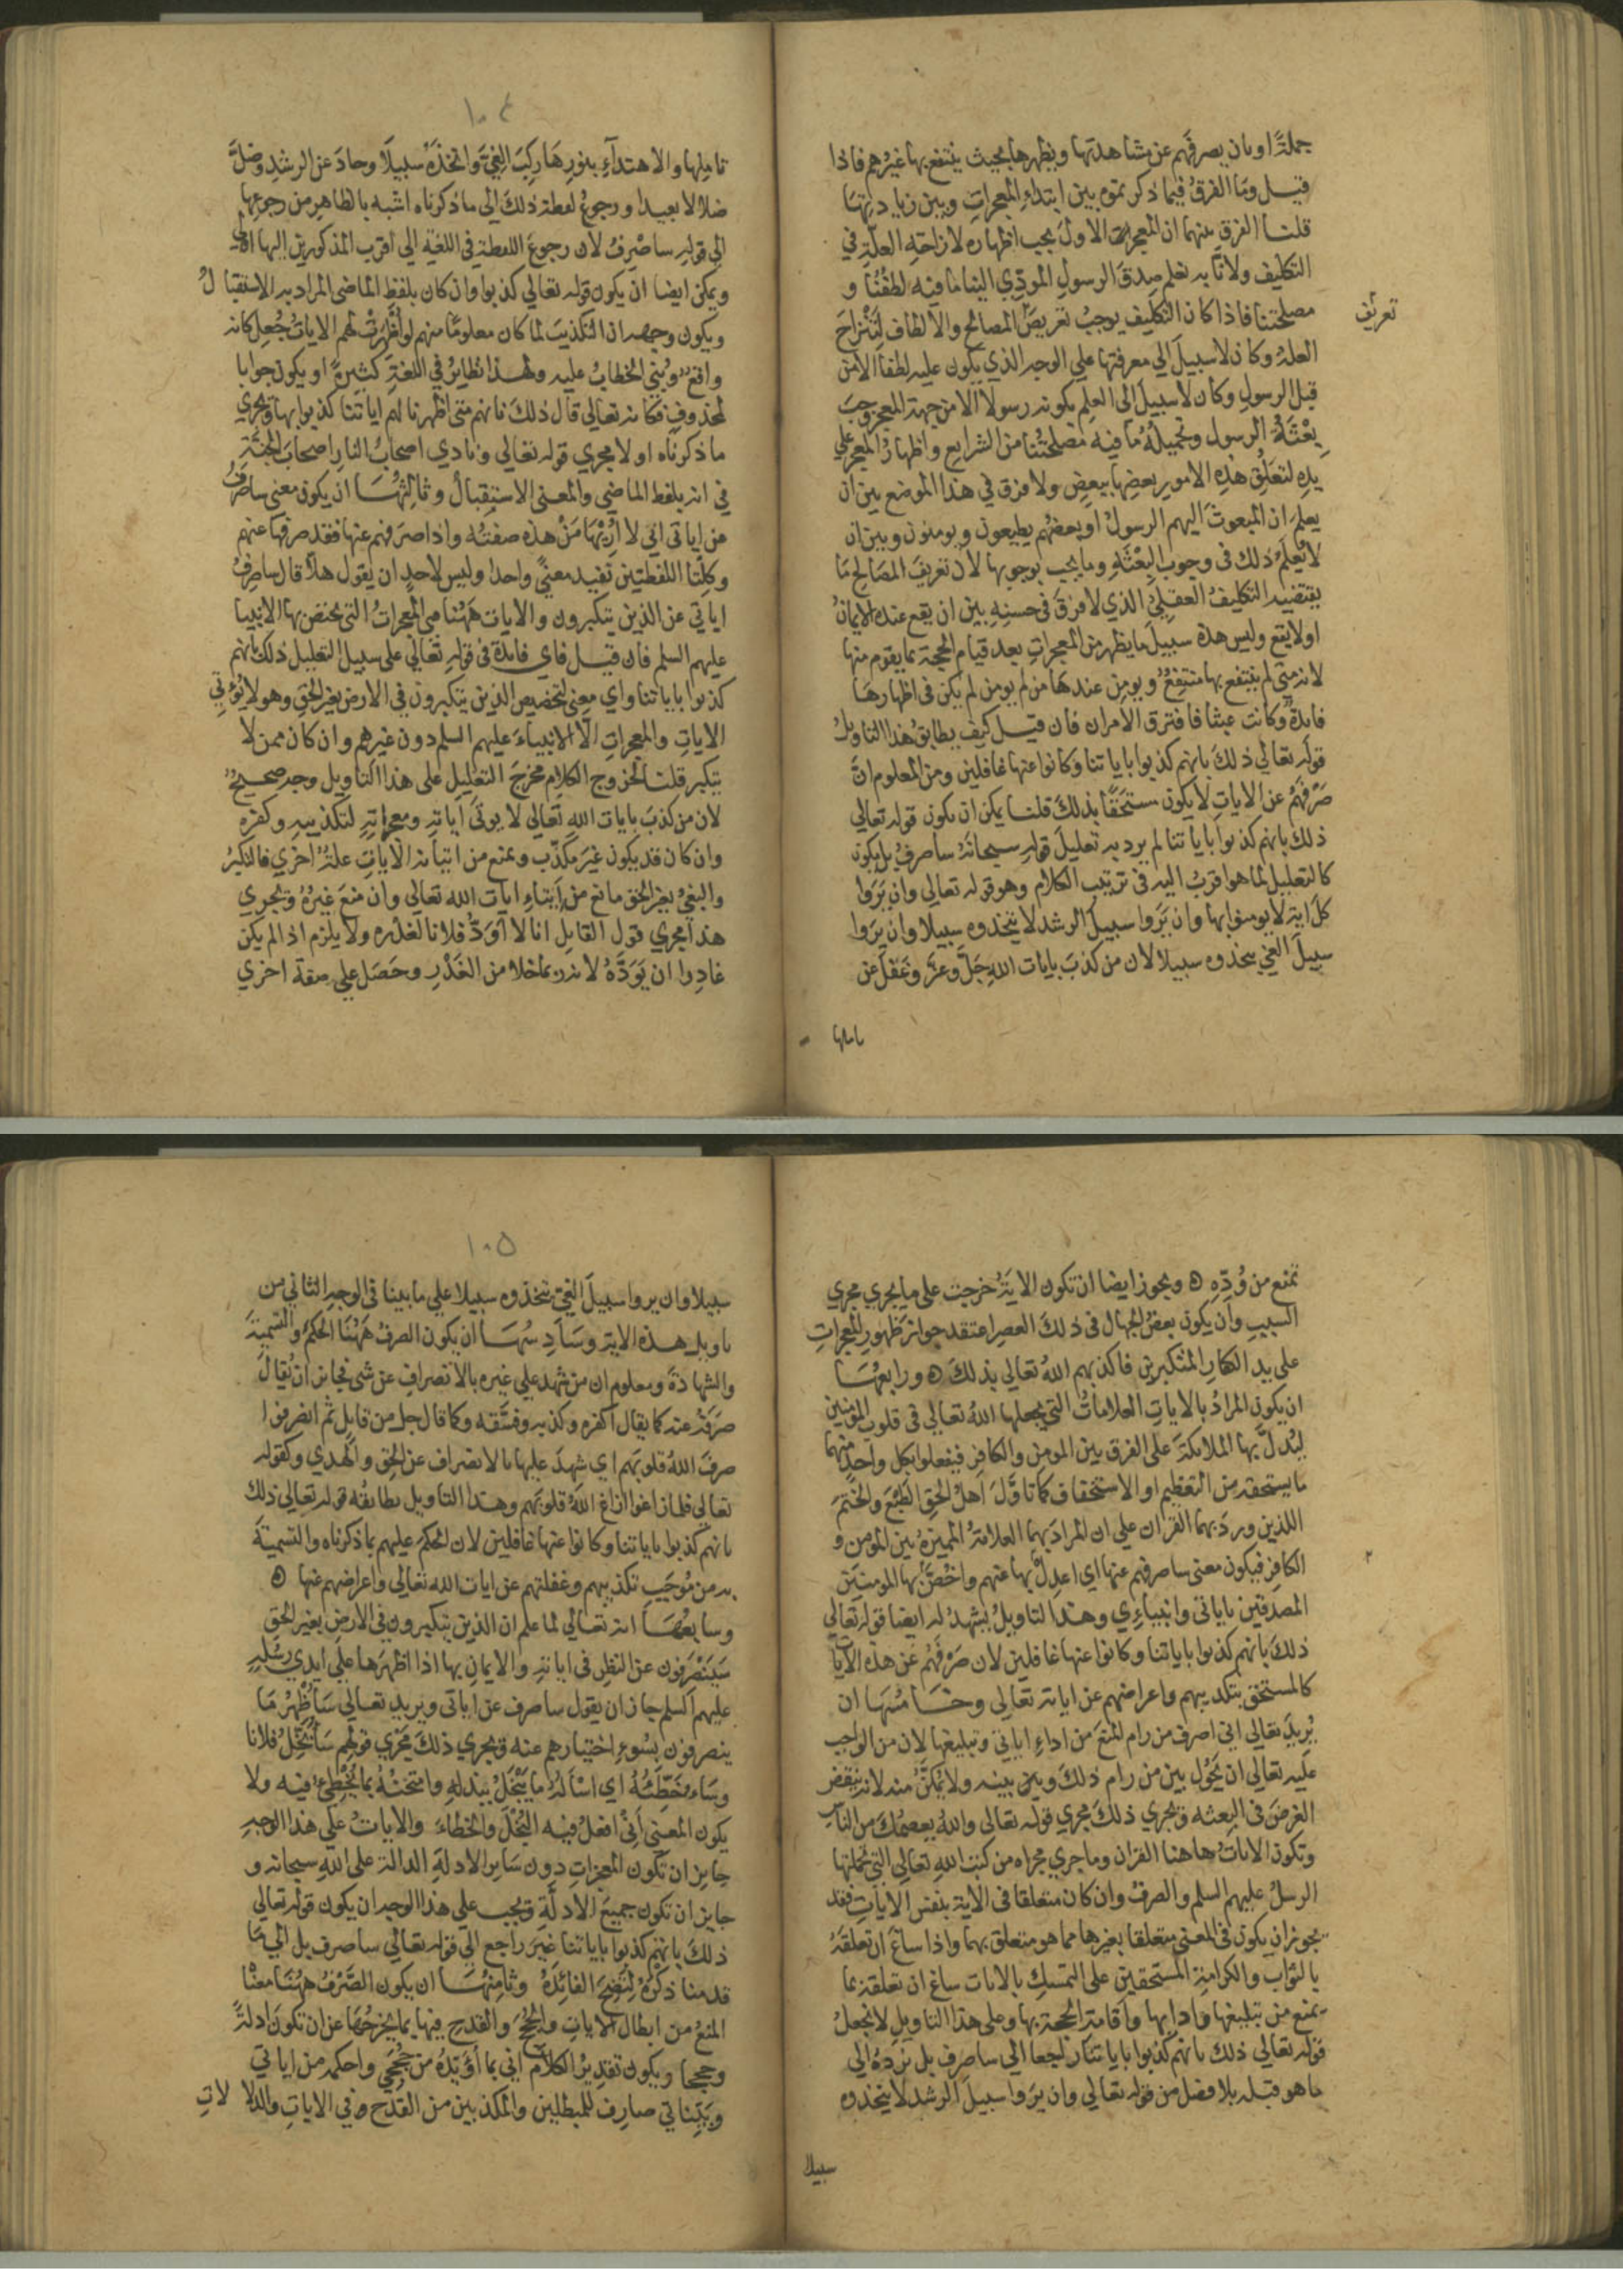 جملةً او بان يصرفَهم عن مشاهدتها ويظهرها بحيث ينتفع بها غيرُهم فاذا
قيل وما الفرقُ فيما ذكرتموه بين ابتداءِ المعجراتِ وبين زيادتِها
قلنا الفرق بينهما ان المعجرات الاولَ يجب اظهاره لازاحةِ العلّةِ في
التكليف ولانّا به نعلم صِدقَ الرسولِ المؤدِّي الينا ما فيه لُطفُنا و
مصلحتنا فاذا كان التكليف يوجبُ تعريضَ المصالح والالطاف لِتَنْزاحَ
تعريف
العلةُ وكان لا سبيلَ الي معرفتها علي الوجه الذي يكون عليه لطفًا الامن
قبل الرسولِ وكان لا سبيلَ الي العلم بكونه رسولًا الا من جهة المعجزِ وجبَ
بِعْثَةُ الرسول وتحميلُهُ ما فيه مصلحتُنا من الشرايع واظهارُ المعجز علي
يدِه لتعلّقِ هذِه الامورِ بعضِها ببعضٍ ولا فرق في هذا الموضع بين ان
يعلمَ ان المبعوثَ اليهم الرسولُ او بعضُهم يطيعون ويومنون وبين ان
لا يُعلمَ ذلك في وجوب البعثَةِ وما يجب بوجوبها لانّ تعريفَ المصَالح مما
يقتضيه التكليفُ العقلِيُّ الذي لا فرقَ في حسنِه بين ان يقع عنده الايمانُ
او لا يقع وليس هذه سبيلَ ما يظهر من المعجراتِ بعد قيام الحجة بما يقوم منها
لانه متي لم ينتفع بها منتفِعٌ ويومن عندها من لم يومن لم يكن في اظهارها
فايدةٌ وكانت عبثا فافترق الامران فان قيل كيف يطابقُ هذا التاويلُ
قوله تعالي ذلك بانهم كذبوا باياتنا وكانوا عنها غافلين ومن المعلوم انَّ
صَرْفَهُم عن الاياتِ لا يكون مستحَقًّا بذلكَ قلنا يمكن ان يكون قوله تعالي
ذلك بانهم كذبوا باياتنا لم يرد به تعليلَ قولِه سبحانَه ساصرفُ بل يكون
كالتعليل لما هو اقربُ اليه في ترتيب الكلام وهو قوله تعالي وان يَرَوا
كلَّ ايةٍ لا يومنوا بها وان يَرَوا سبيلَ الرشد لا يتخذوه سبيلًا وان يَرَوا
سبيلَ الغي يتخذوه سبيلا لان من كذبَ بايات اللهِ جَلَّ وعَزَّ وغَفَلَ عن
تاملها
١٠٤
تامِلها والاهتدآءِ بنورِهَا رَكِبَ الغيَّ واتخذَهُ سبيلًا وحادَ عن الرشدِ وضلَّ
ضلالا بعيدا ورجوعُ لفظة ذلكَ الي ما ذكرناه اشبه بالظاهِر من رجوعها
الي قولِه ساصْرِفُ لان رجوعَ اللفظة في اللغة الي اقرب المذكورين اليها اولي
ويمكن ايضا ان يكون قوله تعالي كذبوا وان كان بلفظِ الماضي المراد به الاستقبالُ
ويكون وجهه ان التكذيبَ لما كان معلومًا منهم لو اُظْهِرَتْ لهم الاياتُ جُعِلَ كانه
واقعٌ وبُنِيَ الخطابُ عليه ولهذا نظايرُ في اللغةِ كثيرةٌ او يكون جوابا
لمحذوفٍ فكانه تعالي قال ذلكَ بانهم متي اظهرنا لهم اياتنا كذبوا بها ويجري
ما ذكرناه اولا مجري قوله تعالي ونادي اصحابُ النارِ اصحابَ الجنّةِ
في انه بلفظ الماضي والمعني الاستقبالُ وثالِثُهَا ان يكون معني ساصرفُ
عن اياتي اني لا اُرِيْهَا مَنْ هذه صفتُه واذا صرَفهم عنها فقد صرفَها عنهم
وكِلْتَا اللفظتين تفيد معنيً واحدا وليس لاحدٍ ان يقول هلّا قال ساصرفُ
اياتي عن الذين يتكبرون والايات هَهُنا هي المعجراتُ التي يختص بها الانبيا
عليهم السلم فان قيل فاي فايدة في قولِه تعالي علي سبيل التعليل ذلك بانهم
كذبوا باياتنا واي معنيً لتخصيص الذين يتكبرون في الارض بغير الحق وهو لا يُؤتي
الاياتِ والمعجراتِ الّا الانبياءَ عليهم السلم دون غيرهم وان كان ممن لا
يتكبر قلنا لخروج الكلام مخرجَ التعليل علي هذا التاويل وجه صحيحٌ
لان من كذبَ بايات اللهِ تعالي لا يوتَي اياتِه ومعجراتِه لتكذيبِه وكفرِه
وان كان قد يكون غيرَ مكذّب ويمنع من اتيانه الايات علةٌ اخري فالتكبرُ
والبغيُ بغير الحق مانع من اِيتاءِ ايات الله تعالي وان منَعَ غيرُهُ ويجري
هذا مجري قول القايلِ انا لا اَوَدُّ فلانا لغَدْرِه ولا يلزم اذا لم يكن
غادِرا ان يَوَدَّهُ لانه ربما خلا من الغَدْرِ وحَصَل علي صفة اخري
تمنع من وُدِّه ٥ ويجوز ايضا ان تكون الايةُ خرجت علي ما يجري مجري
السببِ وان يكون بعضُ الجهال في ذلكَ العصرِ اعتقد جوازَ ظهورِ المعجراتِ
علي يد الكفارِ المتكبرين فاكذبهم اللهُ تعالي بذلكَ ٥ ورابعُهَا
ان يكون المرادُ بالاياتِ العلاماتُ التي يجعلها اللهُ تعالي في قلوب المومنين
ليُدلَّ بها الملايكةَ علي الفرق بين المومنِ والكافر فيفعلوا بكل واحد منهما
ما يستحقه من التعظيم او الاستخفاف كما تاوَّلَ اَهلُ الحق الطَبْعَ والختمَ
اللذين وردَ بهما القرانُ علي ان المرادَ بهما العلامةُ المميزةُ بين المومنِ و
الكافر فيكون معني ساصرفهم عنها اي اعدِلُ بها عنهم واخُصُّ بها المومنينَ
المصدقينَ باياتي وانبيائي وهذا التاويلُ يشهدُ له ايضا قوله تعالي
ذلكَ بانهم كذبوا باياتنا وكانوا عنها غافلين لان صَرْفَهُم عن هذه الايات
كالمستحَق بتكذيبهم واعراضهم عن اياته تعالي وخَامسُهَا ان
يُريدَ تعالي اني اصرف من رام المنعَ من اداءِ اياتي وتبليغها لان من الواجبِ
عليه تعالي ان يَحُولَ بين من رام ذلكَ وبين بينه ولا يُمكّنُ منه لانه ينقض
الغرضَ في البعثه ويجري ذلكَ مجري قوله تعالي واللهُ يعصمُكَ من الناسِ
وتكون الاياتُ هاهنا القران وما جري مجراه من كتب اللهِ تعالي التي تحملتها
الرسلُ عليهم السلم والصرفُ وان كان متعلقا في الاية بنفس الاياتِ فقد
يجوز ان يكون في المعني متعلقا بغيرها مما هو متعلق بها واذا ساغَ ان تعلقَهُ
بالثواب والكرامة المستحقين علي التمسكِ بالايات ساغ ان نعلقَه بما
يمنع من تبليغها وادايها واقامةِ الحجة بها وعلي هذا التاويلِ لا نجعلُ
قوله تعالي ذلك بانهم كذبوا باياتنا راجعا الي ساصرف بل نردُّهُ الي
ما هو قبله بلا فصل من قوله تعالي وان يَرَوا سبيلَ الرشد لا يتخذوه
سبيلا
١٠٥
سبيلا وان يروا سبيلَ الغيِّ يتخذوه سبيلا علي ما بينا في الوجهِ الثاني من
تاويل هذه الاية وسَادِسُهَا ان يكون الصرفُ هَهُنَا الحكمَ والتسميةَ
والشهادةَ ومعلوم ان من شهد علي غيره بالانصرافِ عن شي فجايز ان يُقالَ
صرَفَهُ عنه كما يقال اكفره وكذبه وفسَّقه وكما قال جل من قايل ثم انصرفوا
صرفَ اللهُ قلوبَهم اي شهدَ عليها بالانصرافِ عن الحق والهدي وكقوله
تعالي فلما زاغوا ازاغ اللهُ قلوبَهم وهذا التاويل يطابقُه قوله تعالي ذلك
بانهم كذبوا باياتنا وكانوا عنها غافلين لان الحكمَ عليهم بما ذكرناه والتسميةَ
به من مُوجَبِ تكذيبهم وغفلتهم عن ايات الله تعالي واعراضهم عنها ٥
وسابعُهَا انه تعالي لما علم ان الذين يتكبرون في الارضِ بغير الحق
سَيَنْصَرِفون عن النظرِ في اياته والايمانِ بها اذا اظهرَها علي ايدي رسُلِه
عليهم السلم جاز ان يقول ساصرف عن اياتي ويريد تعالي سَأُظْهِرُ مَا
ينصرفون بسُوءِ اختيارهم عنه ويجري ذلكَ مَجْري قولهم سَأُبَخِّلُ فلانا
وسَاءُخَطِّئُهُ اي اسْألهُ ما يَبْخَلُ ببذلِه وامتحنُهُ بما يُخْطِئُ فيه ولا
يكون المعني اَنِّي افعلُ فيه البُخْلَ والخطاءَ والاياتُ علي هذا الوجهِ
جايز ان تكون المعجزاتِ دون سَايرِ الادلةِ الدالة علي اللهِ سبحانه و
جايز ان تكون جميعَ الادلّةِ ويجب علي هذا الوجه ان يكون قوله تعالي
ذلكَ بانهم كذبوا باياتنا غيرَ راجع الي قوله تعالي ساصرف بل الي مَا
قدمنا ذكرَهُ لِتَصِحَّ الفائدةُ وثامِنُهَا ان يكون الصَّرْفُ هَهُنَا معنَا
المنعُ من ابطال الاياتِ والحججِ والقدحِ فيها بما يخرجُها عن ان تكون ادلةً
وحججا ويكون تقديرُ الكلام اني بما اُؤَيّدُهُ من حُججي واحكمه من اياتي
وبَيِّناتي صارِف للمبطلين والمكذبين من القدح وفي الاياتِ والدلالاتِ